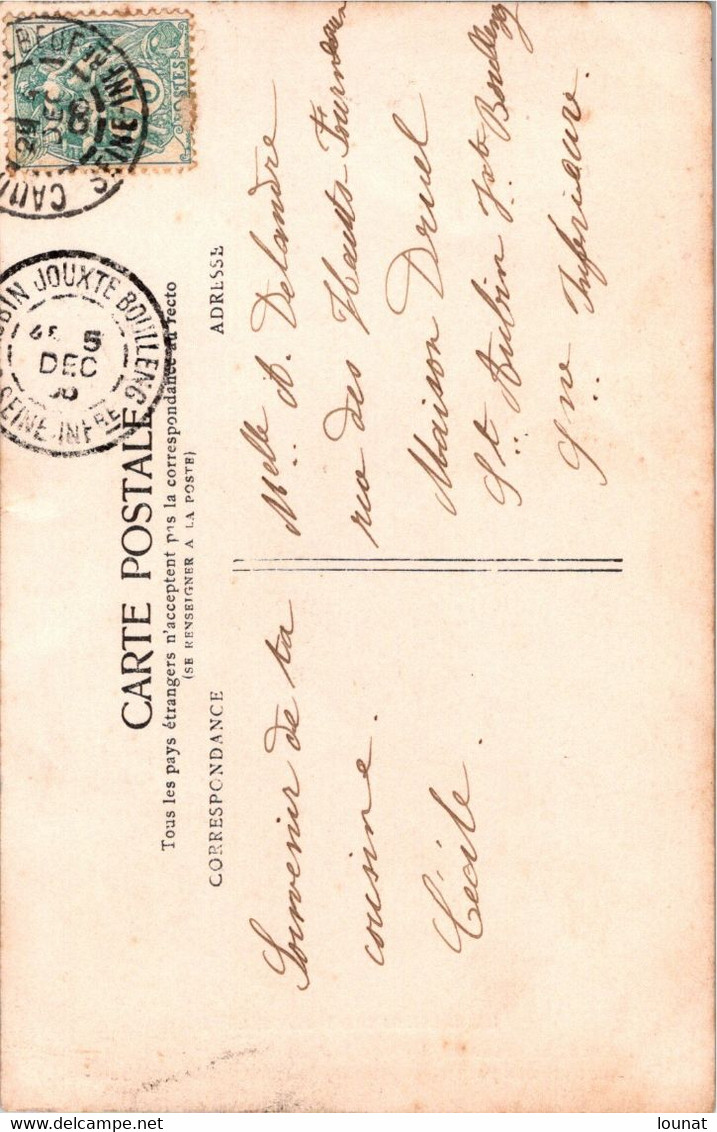 CARTE POSTALE
Tous les pays étrangers n'acceptent pas la correspondance au recto
(SE RENSEIGNER A LA POSTE)
CORRESPONDANCE
ADRESSE
Souvenir de ta
cousine.
Cécile.
Melle A. Delandre
rue des Hauts Fourneaux
Maison Druel
St Aubin Jxte Boulleng
Sne Inférieure.
BIN JOUXTE BOULLENG
5
DEC
SEINE-INFRE
DEC
SEINE INF
POSTES
lounat